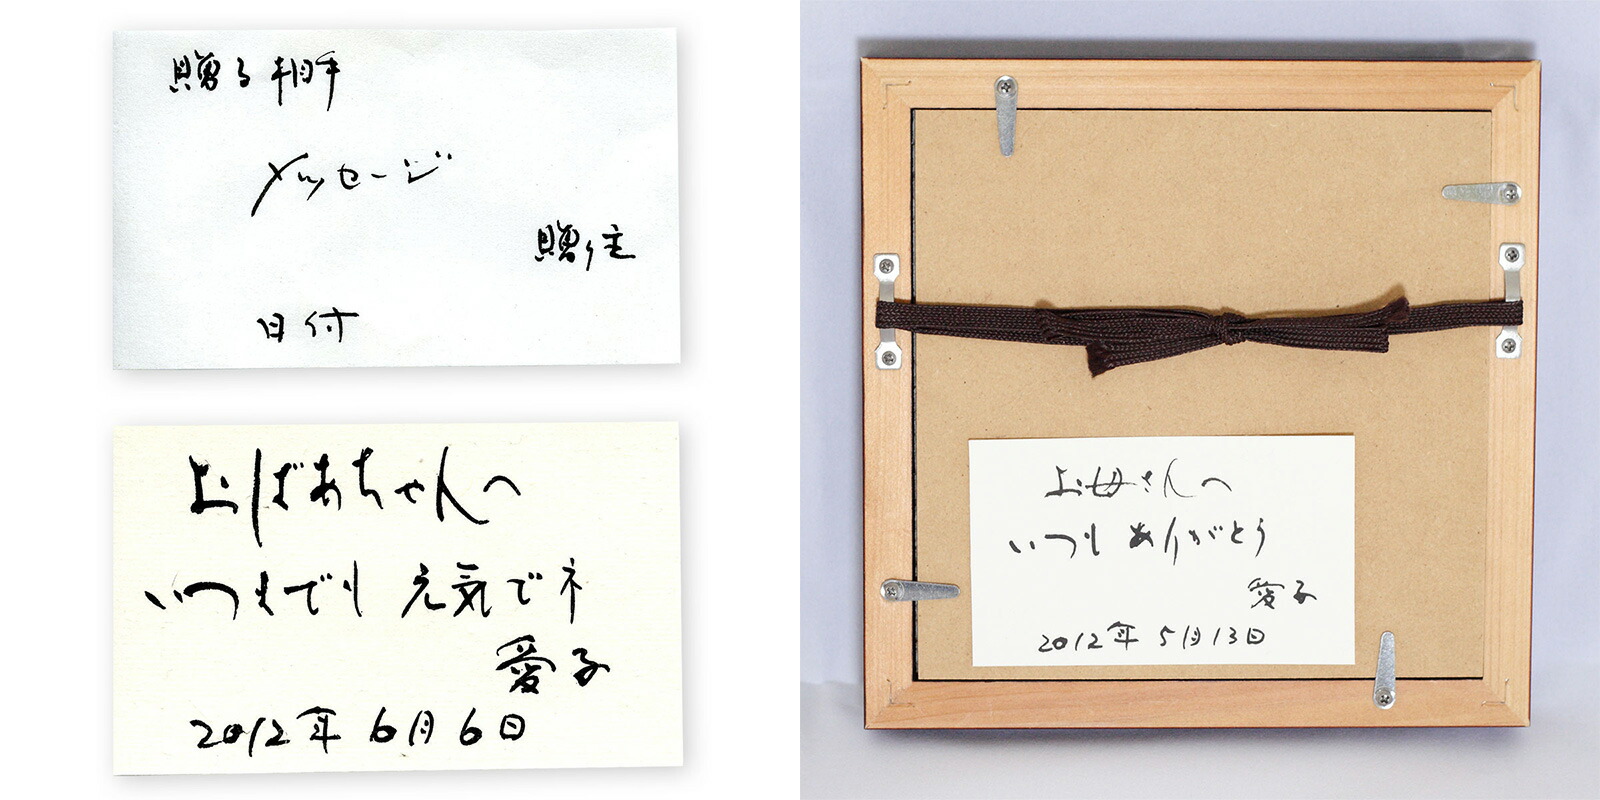 贈る相手
メッセージ
贈り主
日付
おばあちゃんへ
いつまでも 元気でネ
愛子
2012年 6月 6日
お母さんへ
いつも ありがとう
愛子
2012年 5月13日